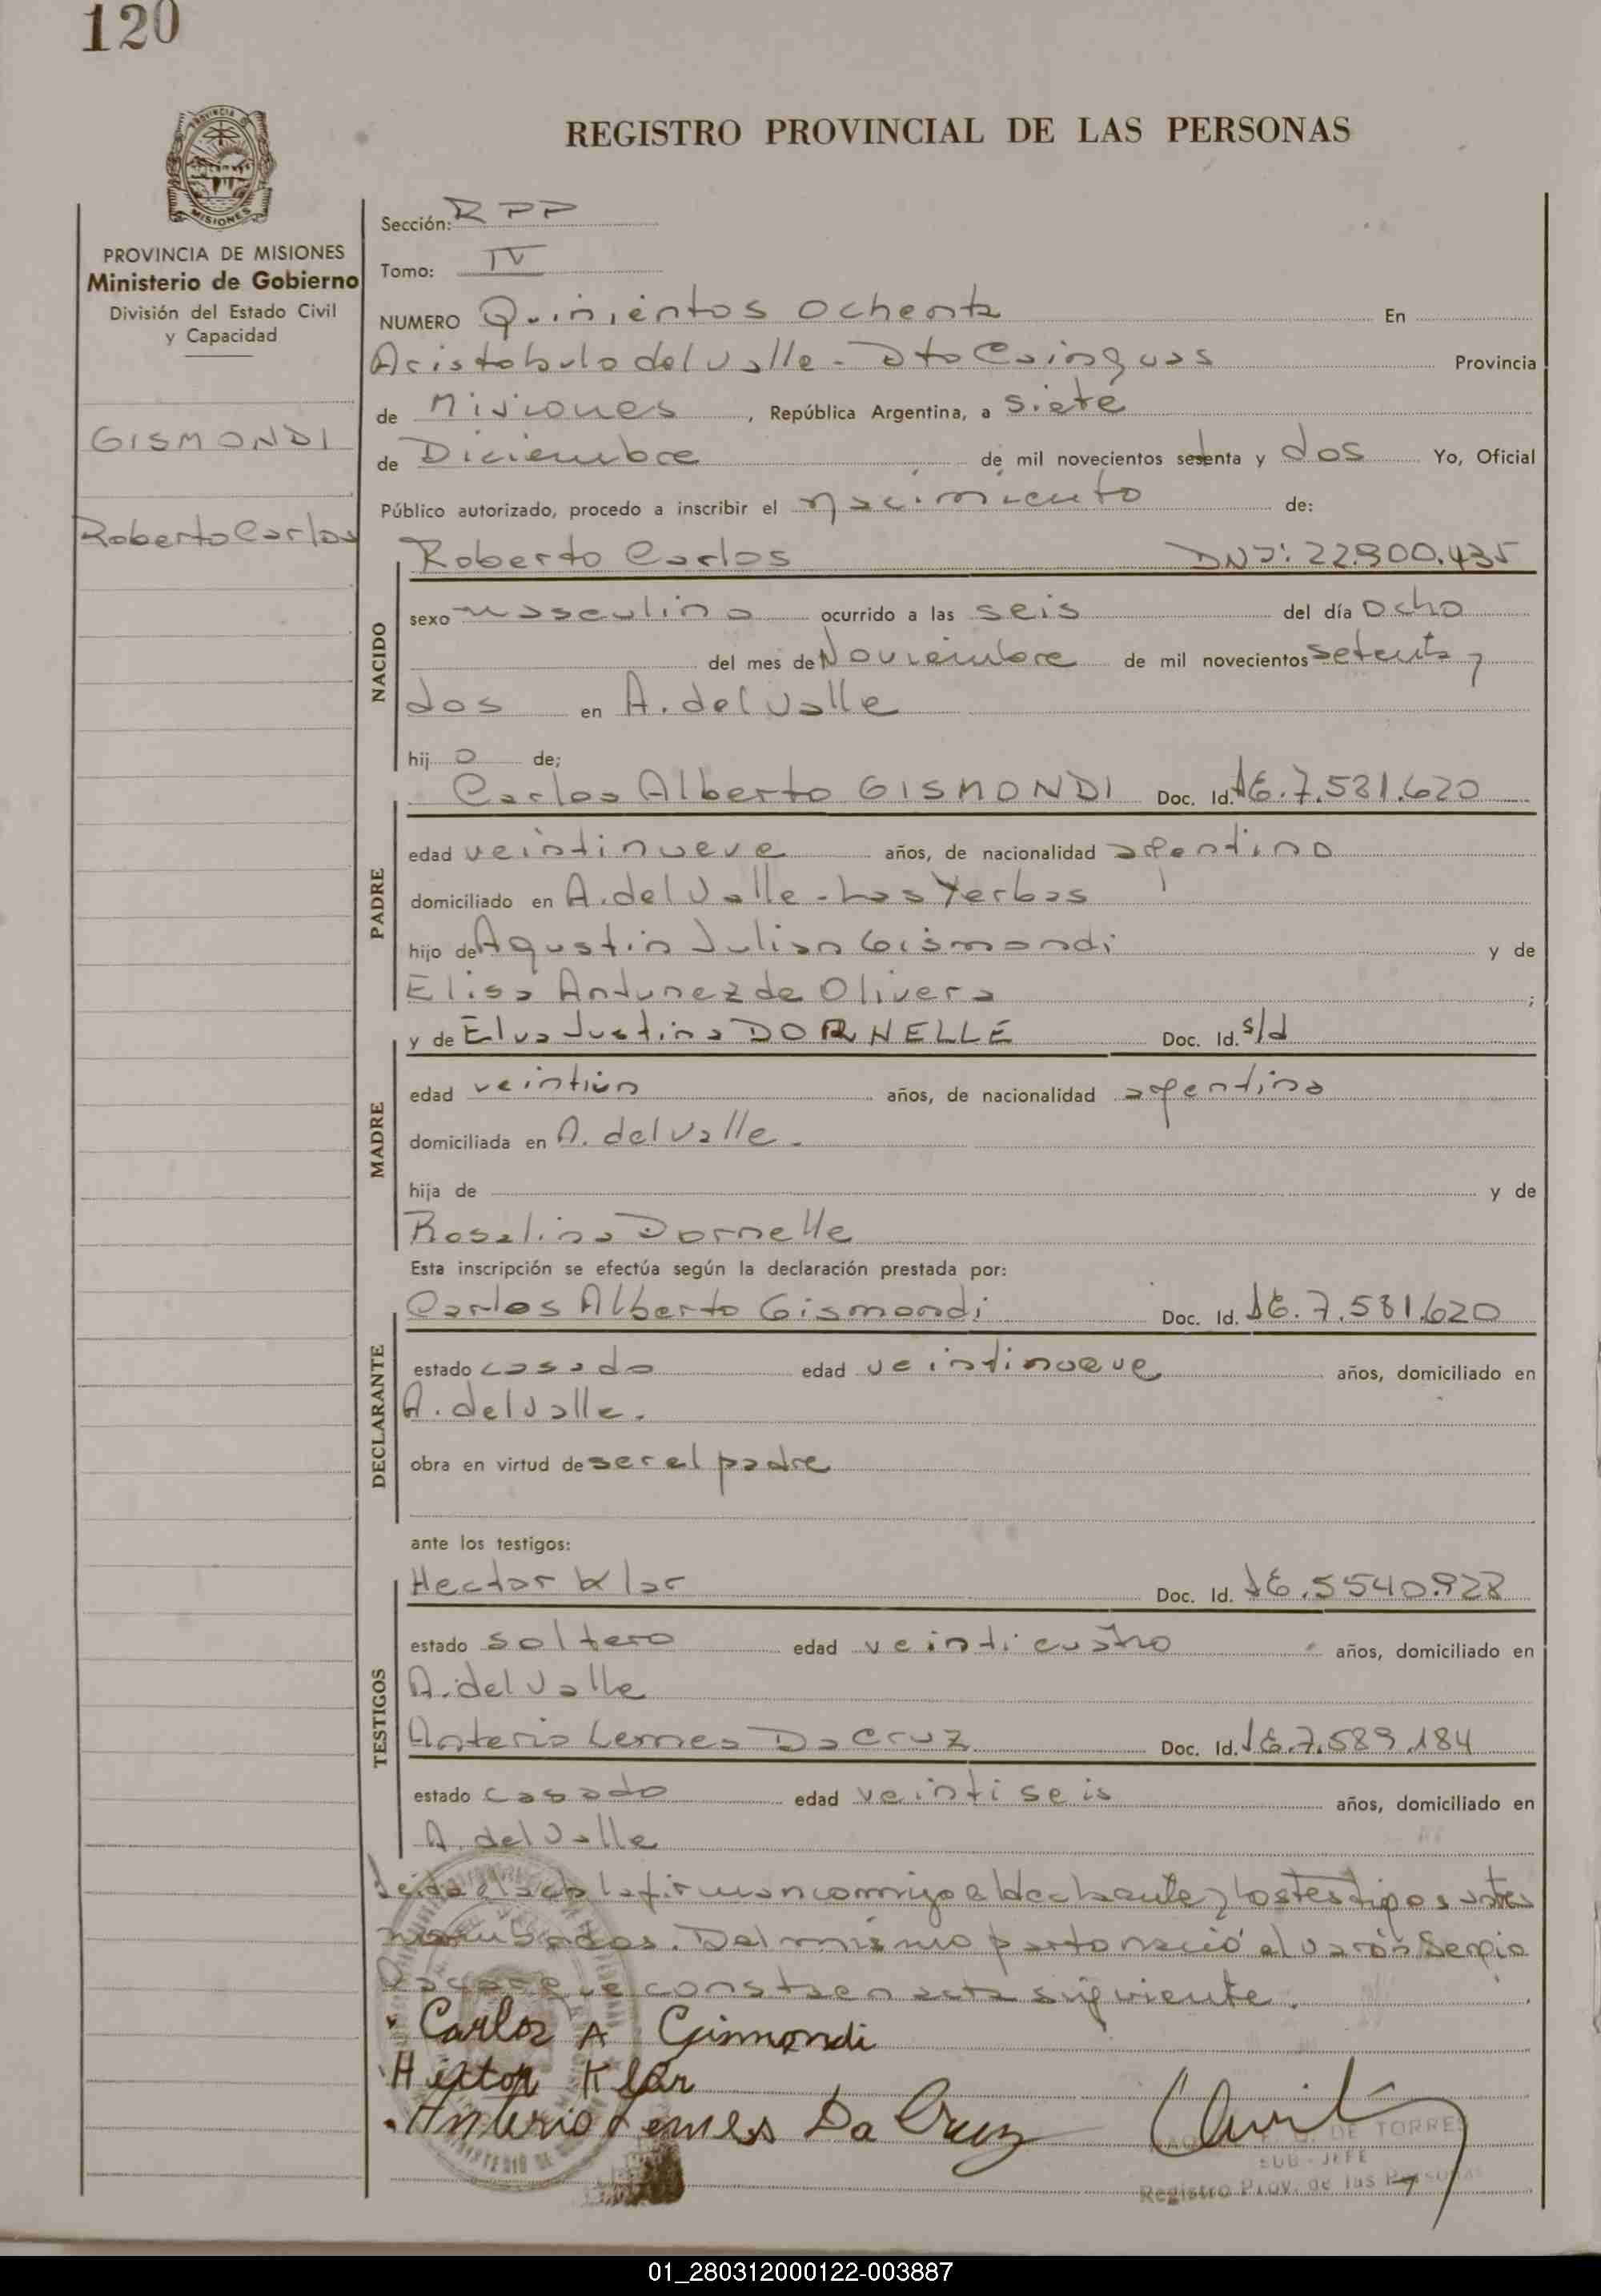 120
REGISTRO PROVINCIAL DE LAS PERSONAS
PROVINCIA DE MISIONES
MISIONES
PROVINCIA DE MISIONES
Ministerio de Gobierno
División del Estado Civil
y Capacidad
GISMONDI
Roberto Carlos
Sección: RPP
Tomo: IV
NUMERO Quinientos ochenta En
Aristobulo del Valle - Dto Cainguas Provincia
de Misiones, República Argentina, a siete
de Diciembre de mil novecientos setenta y dos Yo, Oficial
Público autorizado, procedo a inscribir el nacimiento de:
NACIDO
Roberto Carlos DNI: 22.900.435
sexo masculino ocurrido a las seis del día ocho
del mes de Noviembre de mil novecientos setenta y
dos en A. del Valle
hij o de;
PADRE
Carlos Alberto GISMONDI Doc. Id. 7.581.620
edad veintinueve años, de nacionalidad argentino
domiciliado en A. del Valle - Las Yerbas
hijo de Agustin Julian Gismondi y de
Elisa Antunez de Olivera ;
MADRE
y de Elva Justina DORNELLE Doc. Id. s/d
edad veintiún años, de nacionalidad argentina
domiciliada en A. del Valle.
hija de y de
Rosalina Dornelle
Esta inscripción se efectúa según la declaración prestada por:
DECLARANTE
Carlos Alberto Gismondi Doc. Id. 7.581.620
estado casado edad veintinueve años, domiciliado en
A. del Valle.
obra en virtud de ser el padre
ante los testigos:
TESTIGOS
Hector Klar Doc. Id. 5540.928
estado soltero edad veinticuatro años, domiciliado en
A. del Valle
Anterio Lemes Da Cruz Doc. Id. 7.589.184
estado casado edad veintiseis años, domiciliado en
A. del Valle
Leida el acta la firman conmigo el declarante y los testigos antes
nombrados. Del mismo parto nació el varón Sergio
que consta en acta siguiente.
Carlos A Gismondi
Hector Klar
Anterio Lemes Da Cruz
DE TORRES
SUB-JEFE
Registro Prov. de las Personas
01_280312000122-003887